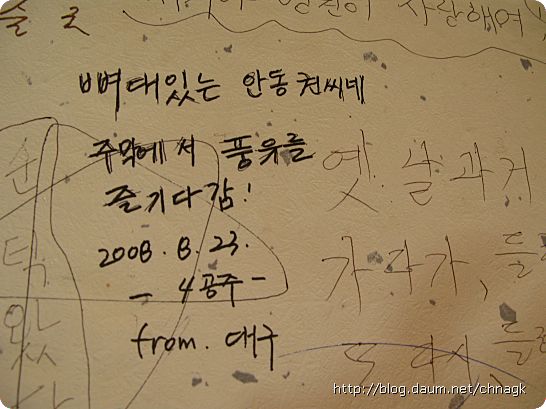 술로
사랑해여
뼈대있는 안동 권씨네
주막에서 풍유를
즐기다 감!
2008. 8. 23.
- 4공주 -
from. 대구
옛날 과거
가다가, 들
순
턱
왔
http://blog.daum.net/chnagk